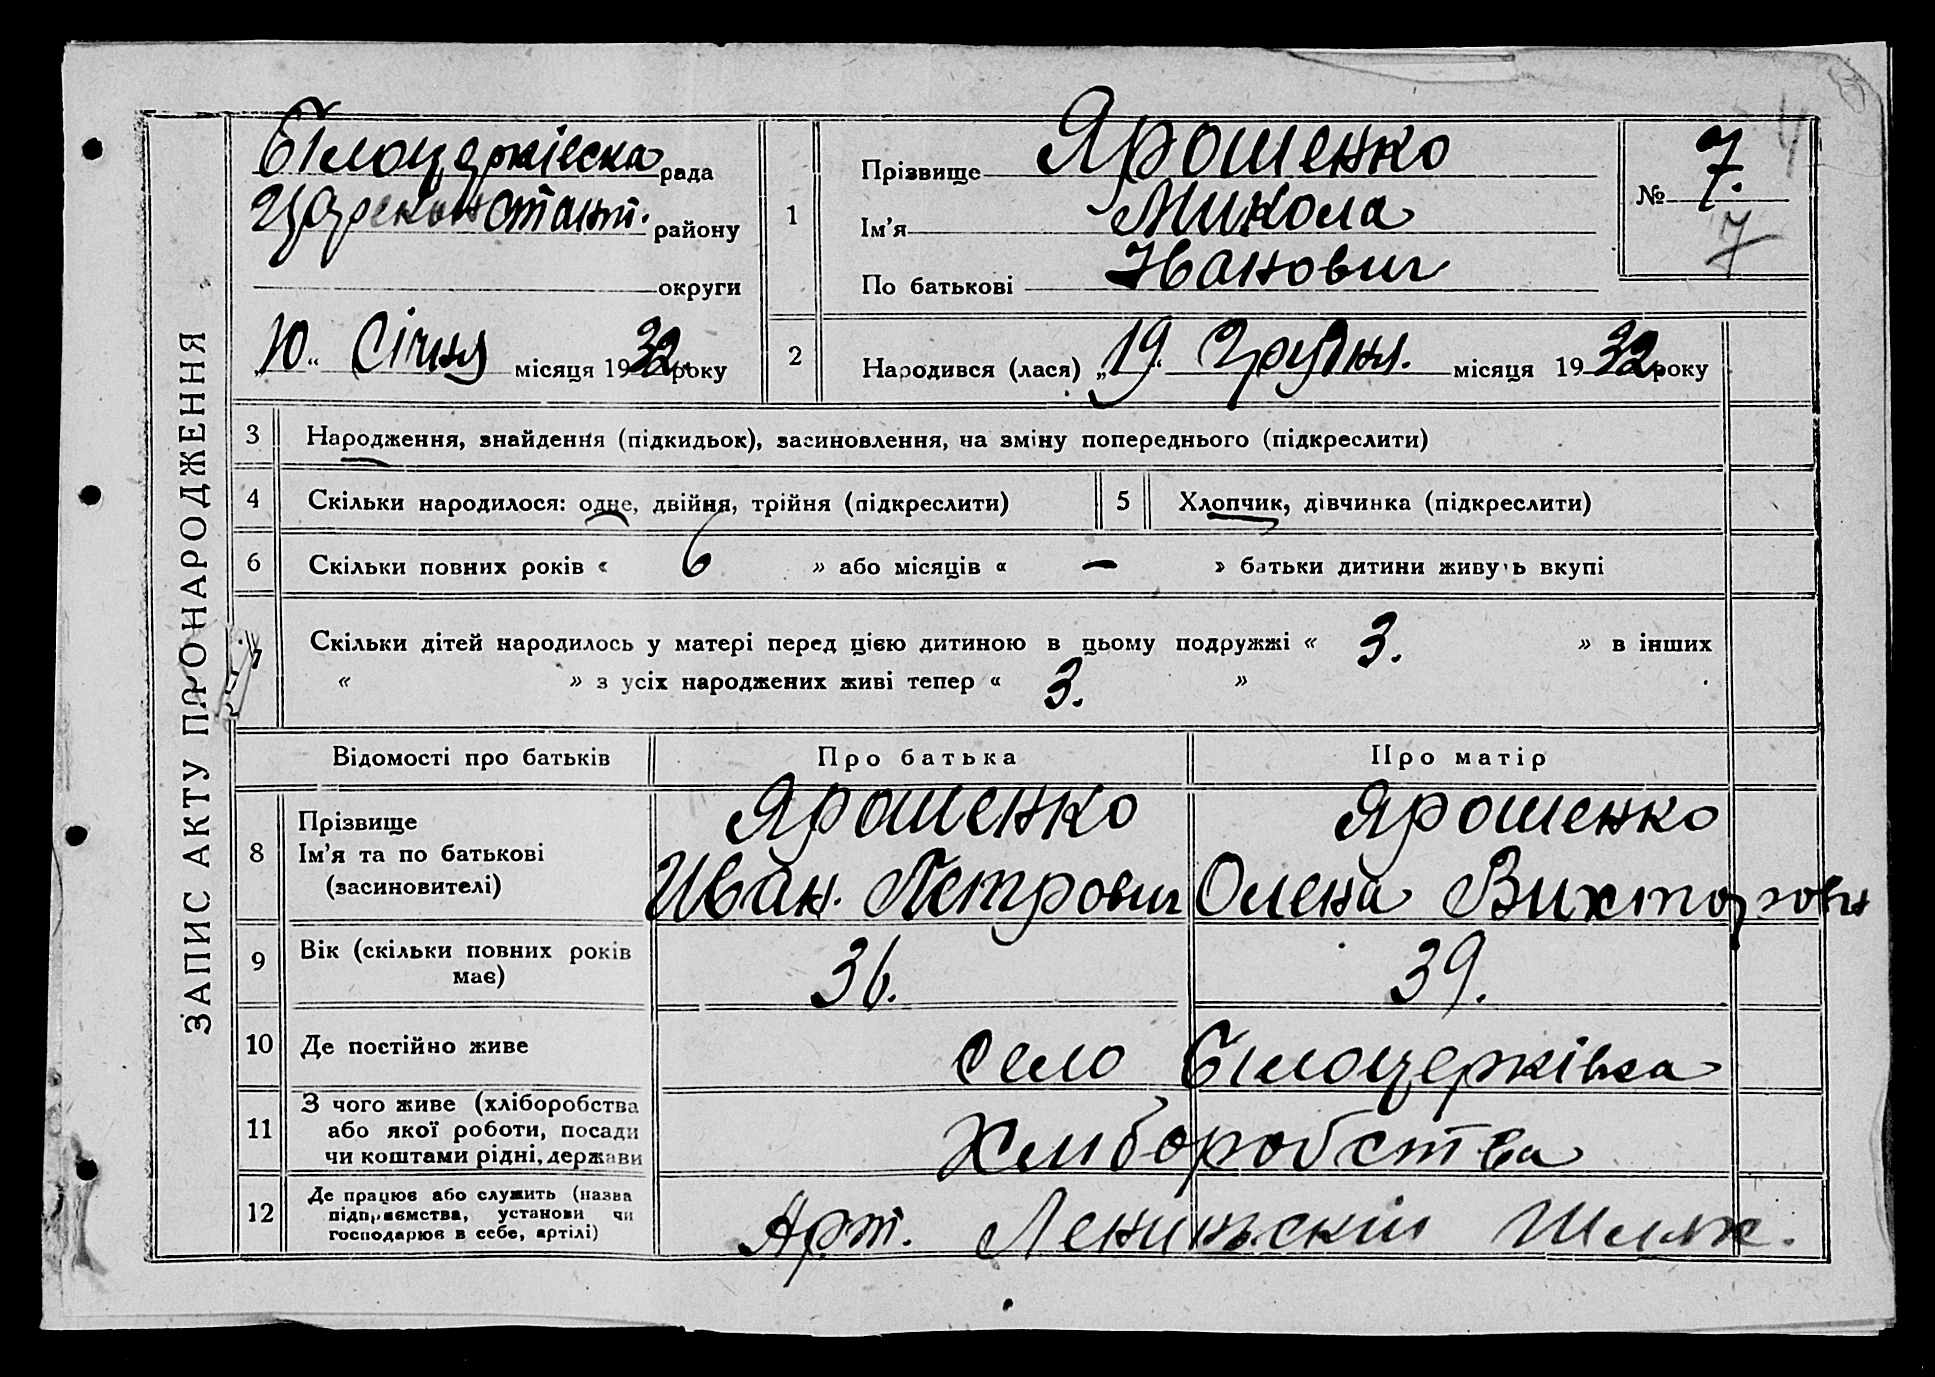 ЗАПИС АКТУ ПРО НАРОДЖЕННЯ
Білоцерківска рада
Царекон стант. району
округи
„10“ Січня місяця 1932 року
1 Прізвище Ярошенко
Ім’я Микола
По батькові Иванович
№ 7.
7
2 Народився (лася) „19“ Грудня. місяця 1932 року
3 Народження, знайдення (підкидьок), засиновлення, на зміну попереднього (підкреслити)
4 Скільки народилося: одне, двійня, трійня (підкреслити) 5 Хлопчик, дівчинка (підкреслити)
6 Скільки повних років « 6 » або місяців « — » батьки дитини живуть вкупі
7 Скільки дітей народилось у матері перед цією дитиною в цьому подружжі « 3. » в інших
« » з усіх народжених живі тепер « 3. »
Відомості про батьків Про батька Про матір
8 Прізвище
Ім’я та по батькові
(засиновителі)
Ярошенко Ярошенко
Иван. Петрович Олена Вихторовн
9 Вік (скільки повних років
має)
36. 39.
10 Де постійно живе село Білоцерківка
11 З чого живе (хліборобства
або якої роботи, посади
чи коштами рідні, держави
Хлиборобства
12 Де працює або служить (назва
підприємства, установи чи
господарює в себе, артілі)
Арт. Лениньский Шлях.